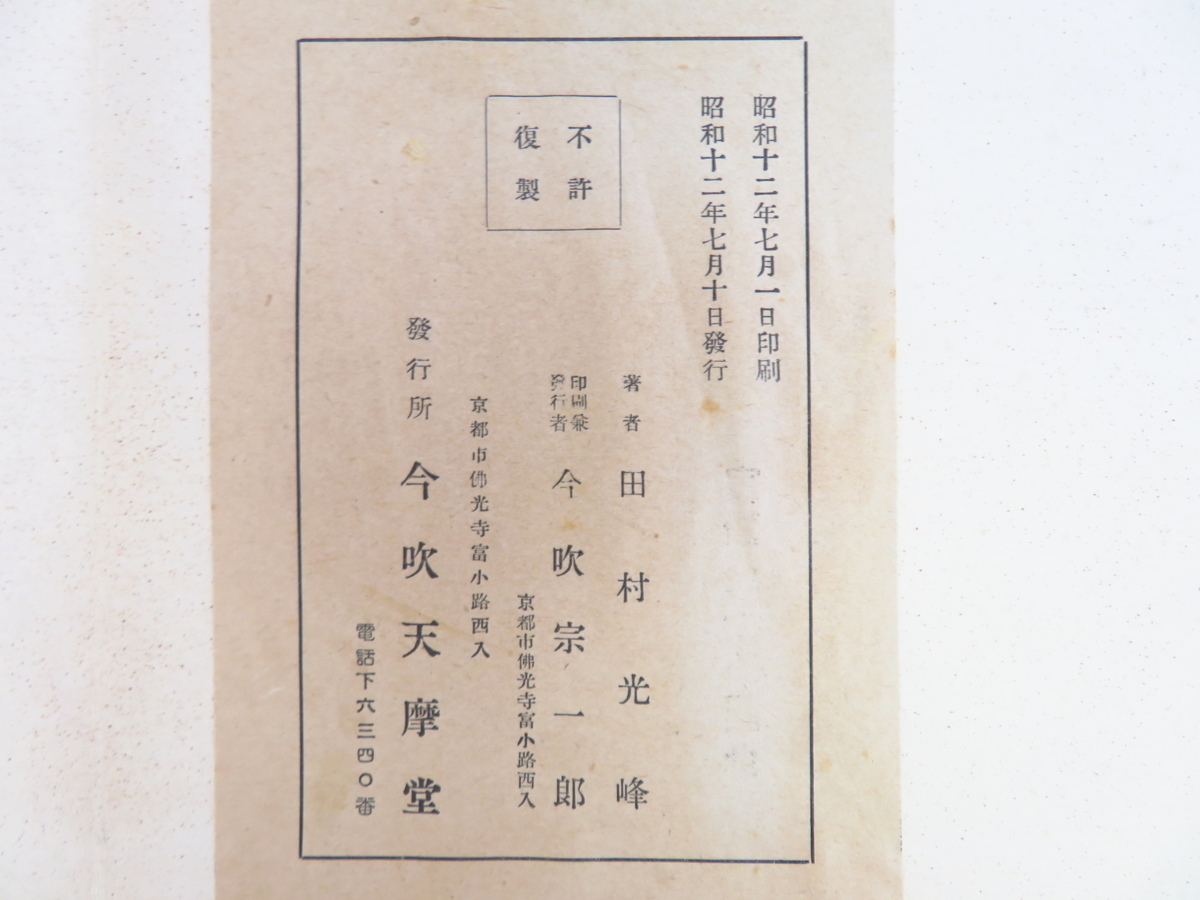 昭和十二年七月一日印刷
昭和十二年七月十日發行
不許
復製
著者 田村光峰
印刷兼
發行者 今吹宗一郎
京都市佛光寺富小路西入
京都市佛光寺富小路西入
發行所 今吹天摩堂
電話下六三四〇番